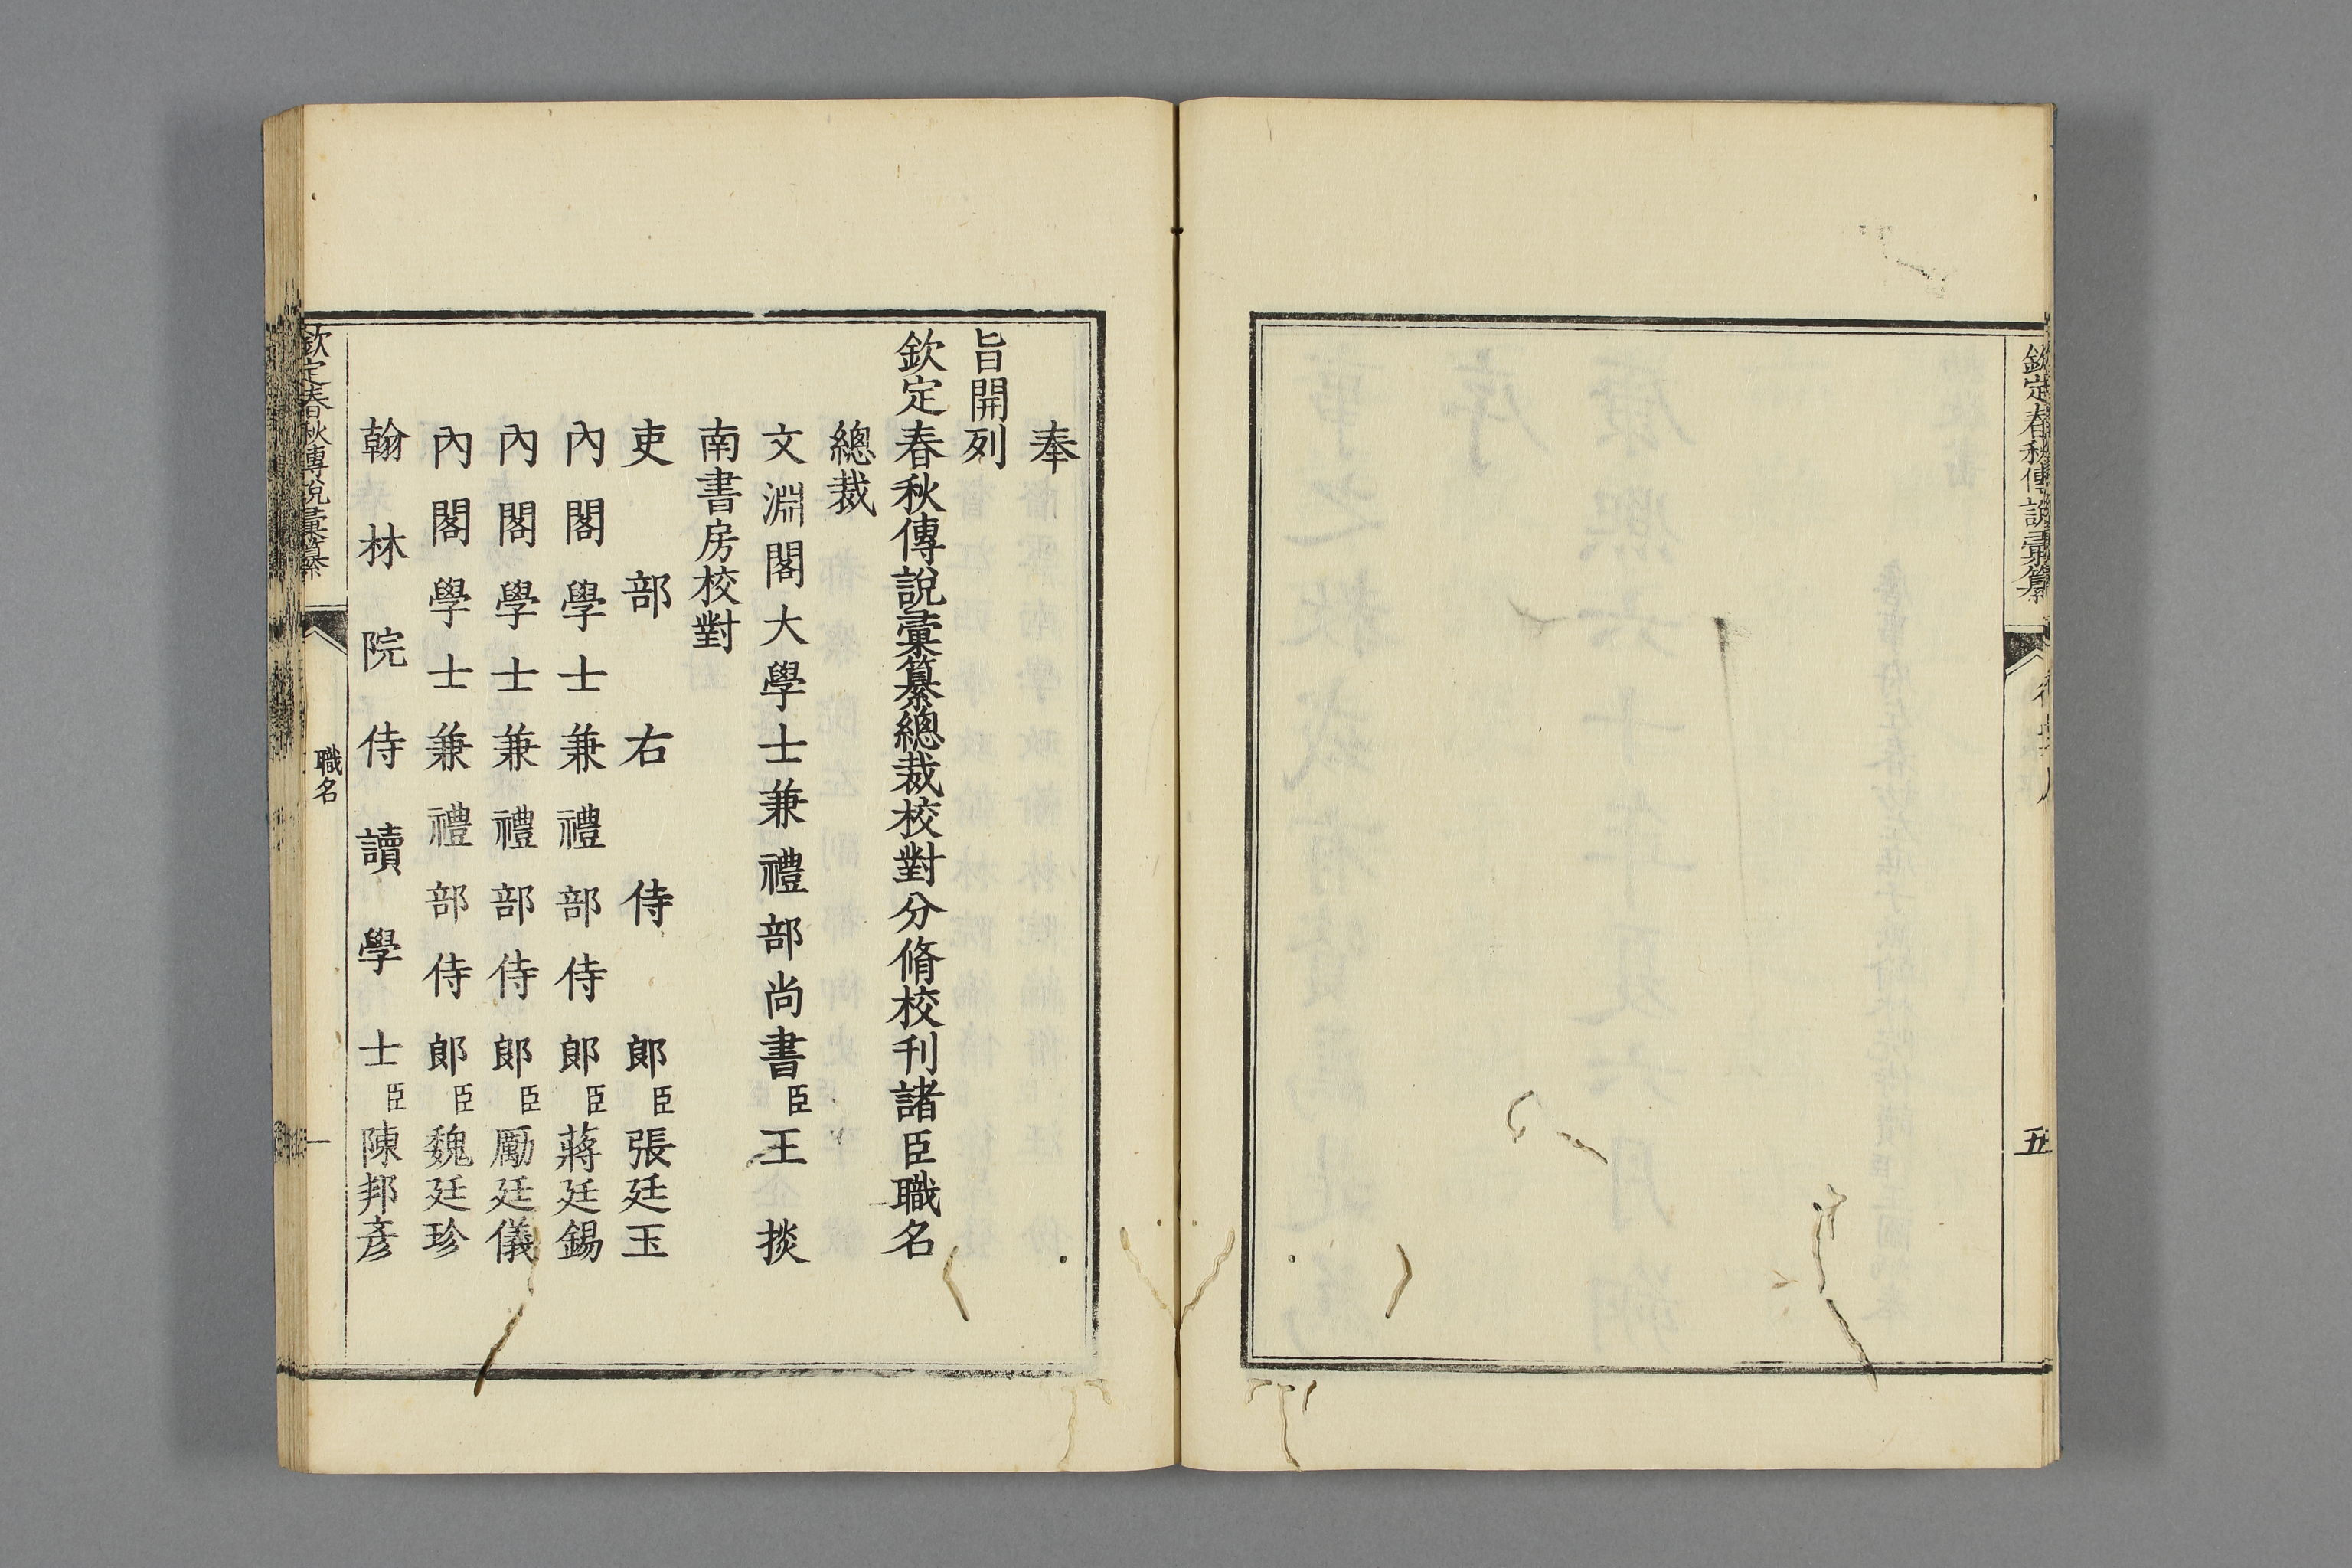 欽定春秋傳說彙纂
五
奉
旨開列
欽定春秋傳說彙纂總裁校對分脩校刊諸臣職名
總裁
文淵閣大學士兼禮部尚書臣王掞
南書房校對
吏部右侍郎臣張廷玉
內閣學士兼禮部侍郎臣蔣廷錫
內閣學士兼禮部侍郎臣勵廷儀
內閣學士兼禮部侍郎臣魏廷珍
翰林院侍讀學士臣陳邦彥
欽定春秋傳說彙纂
職名
一